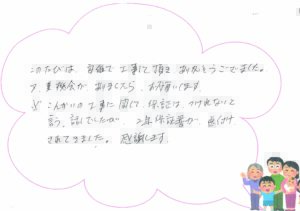 このたびは、自宅で工事して頂きありがとうございました。
又、機会がありましたら、お願いします。
※こんかいの工事に関して、保証は、つけれないと
言う、話しでしたが、2年保証書が、
されてきました。感謝します。